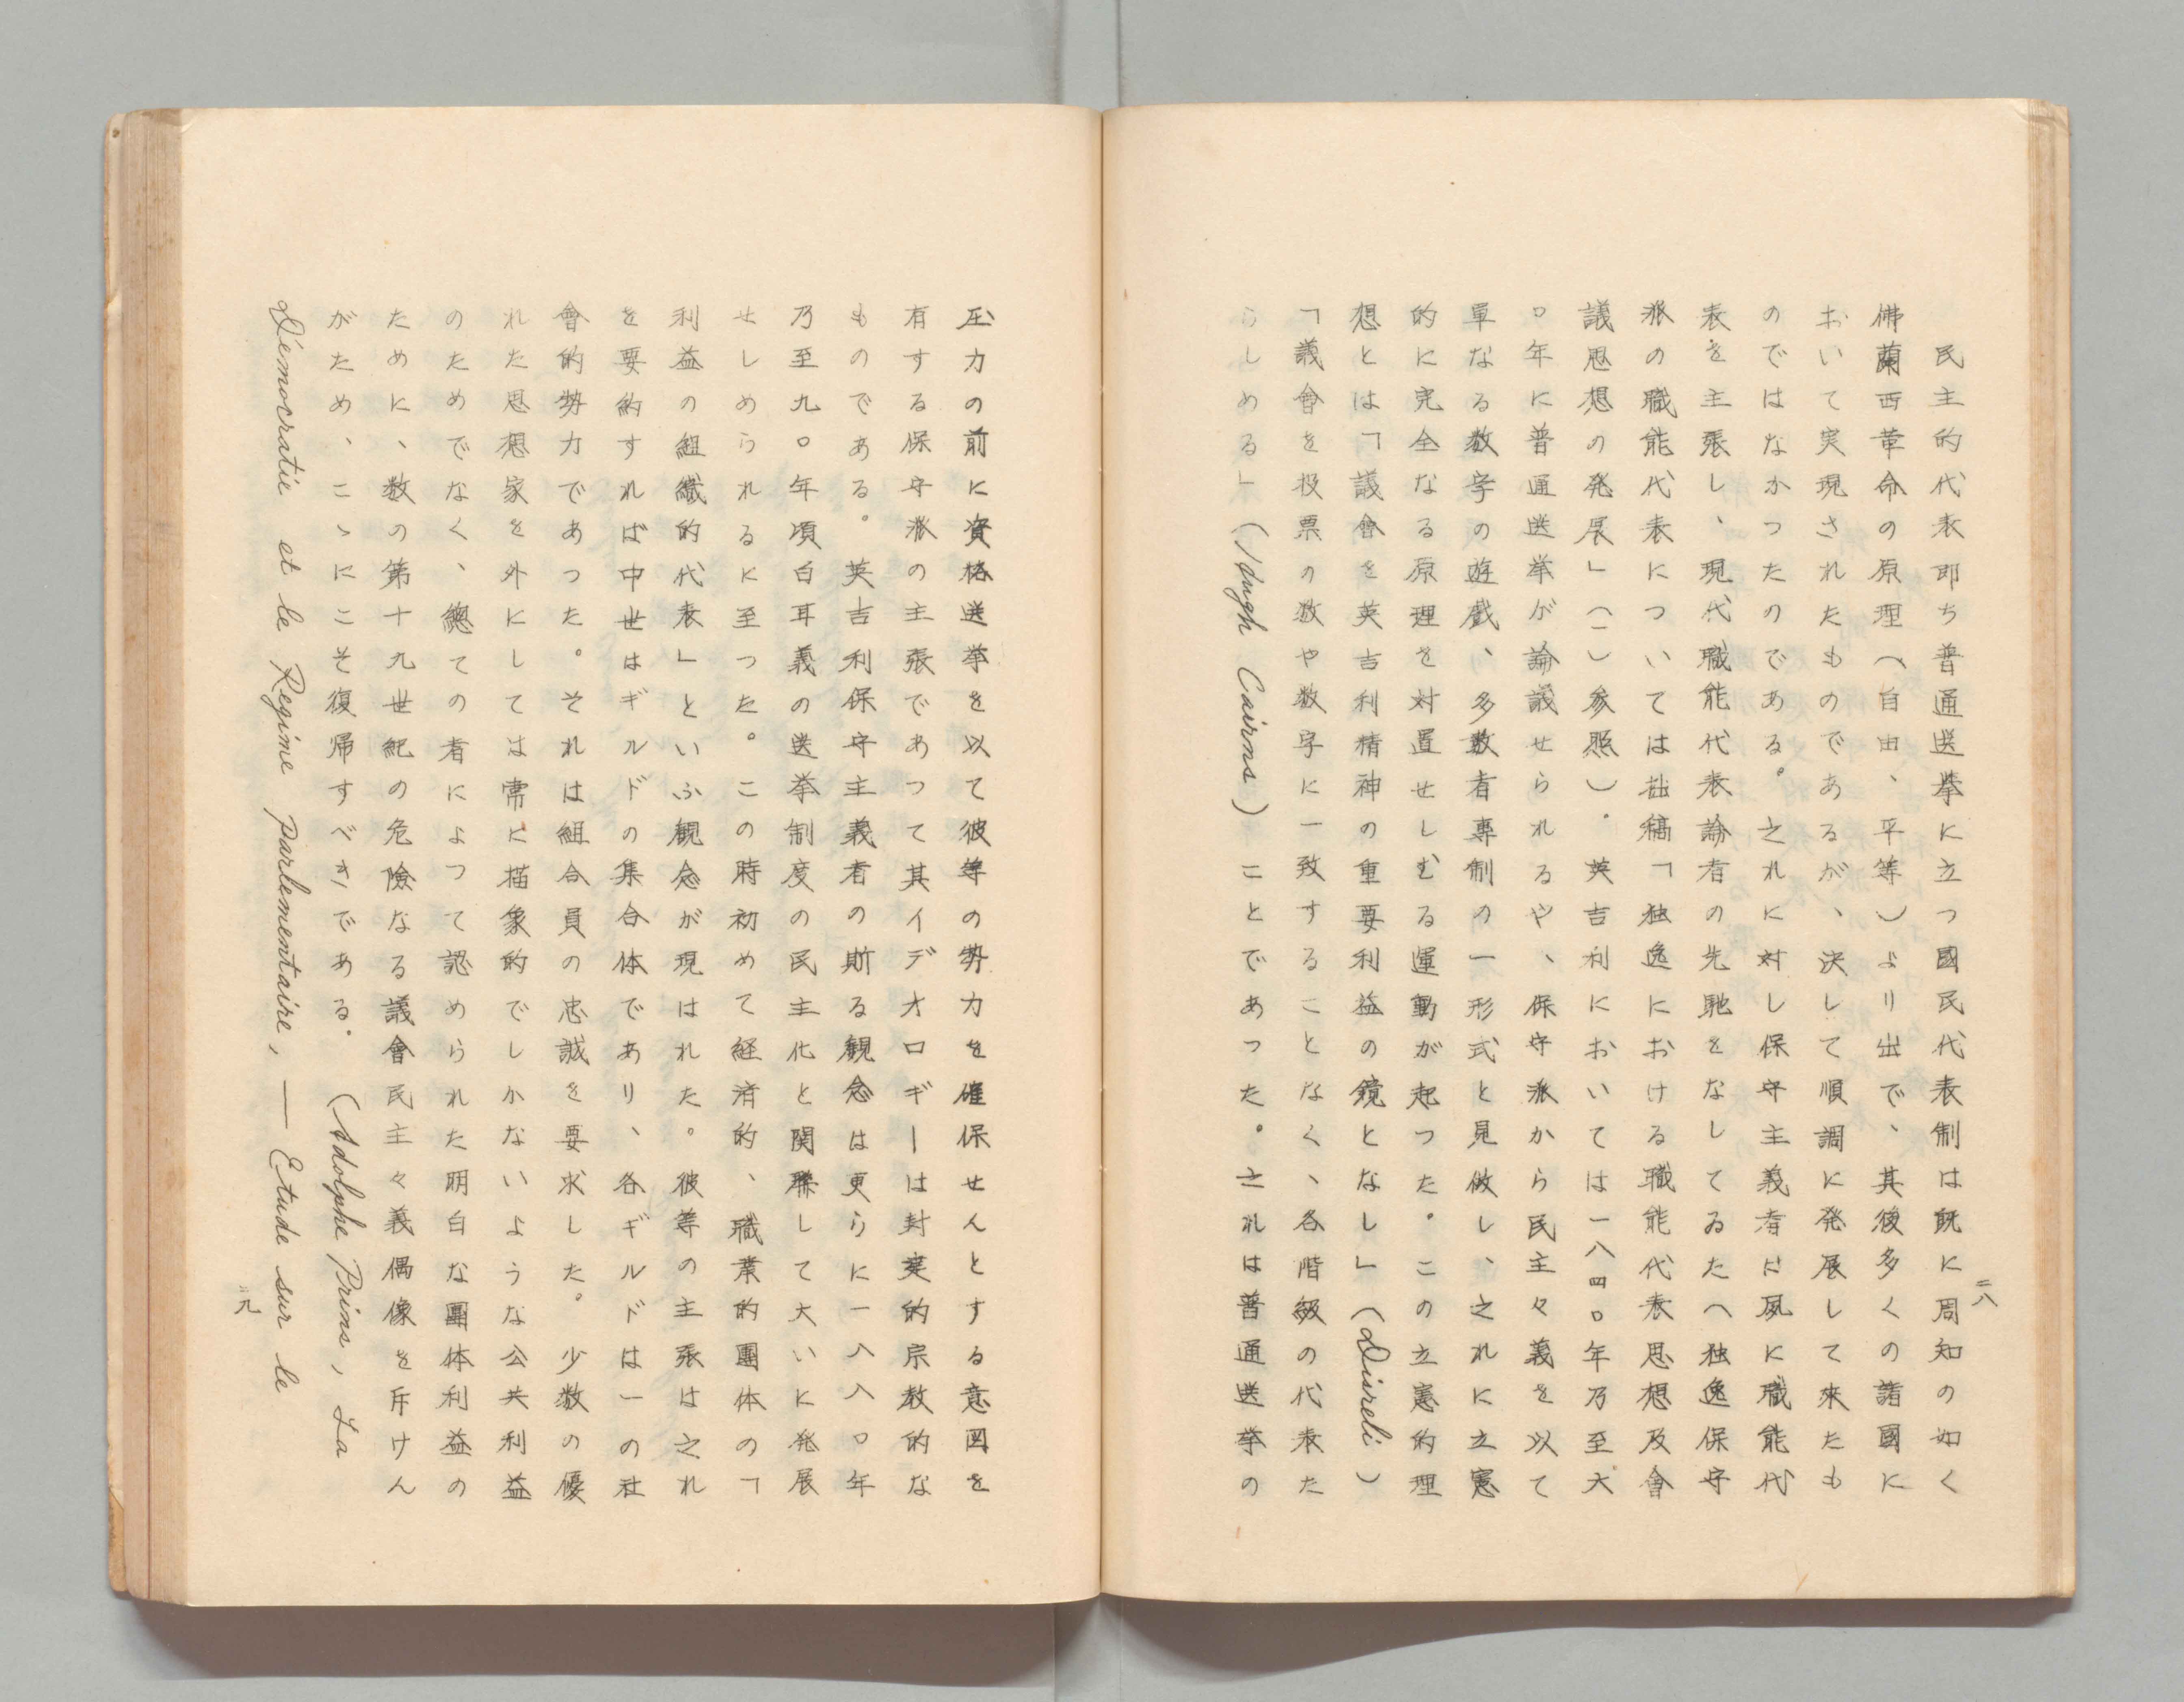 民主的代表即ち普通送挙に立つ國民代表制は既に周知の如く
佛蘭西革命の原理（自由、平等）より出で、其後多くの諸國に
おいて実現されたものであるが、決して順調に発展して来たも
のではなかったのである。之れに対し保守主義者は夙に職能代
表を主張し、現代職能代表論者の先馳をなしてゐた（独逸保守
派の職能代表については拙稿「独逸における職能代表思想及會
議思想の発展」（一）参照）。英吉利においては一八四〇年乃至六
〇年に普通送挙が論議せられるや、保守派から民主々義を以て
單なる数字の遊戯、多数者専制の一形式と見做し、之れに立憲
的に完全なる原理を対置せしむる運動が起つた。この立憲的理
想とは「議會を英吉利精神の重要利益の鏡となし」（Disreli）
「議會を投票の数や数字に一致することなく、各階級の代表た
らしめる」（Hugh Cairns）ことであつた。之れは普通送挙の
二八
圧力の前に資格送挙を以て彼等の勢力を確保せんとする意図を
有する保守派の主張であつて其イデオロギーは封建的宗教的な
ものである。英吉利保守主義者の斯る観念は更らに一八八〇年
乃至九〇年頃白耳義の送挙制度の民主化と関聯して大いに発展
せしめられるに至つた。この時初めて経済的、職業的團体の「
利益の組織的代表」といふ観念が現はれた。彼等の主張は之れ
を要約すれば中世はギルドの集合体であり、各ギルドは一の社
會的勢力であつた。それは組合員の忠誠を要求した。少数の優
れた思想家を外にしては常に描象的でしかないような公共利益
のためでなく、總ての者によつて認められた明白な團体利益の
ために、数の第十九世紀の危險なる議會民主々義偶像を斥けん
がため、こゝにこそ復帰すべきである。（Adolphe Prins, La
Démocratie et le Regine parlementaire, — Etude sur le
二九